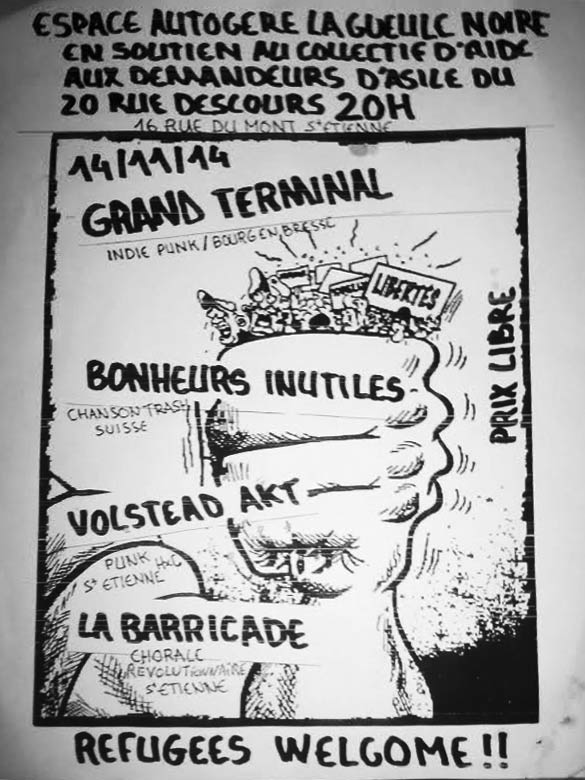 ESPACE AUTOGERE LA GUEULE NOIRE
EN SOUTIEN AU COLLECTIF D'AIDE
AUX DEMANDEURS D'ASILE DU
20 RUE DESCOURS 20H
16 RUE DU MONT ST ETIENNE
14/11/14
GRAND TERMINAL
INDIE PUNK / BOURG EN BRESSE
LIBERTÉS
PRIX LIBRE
BONHEURS INUTILES
CHANSON TRASH
SUISSE
VOLSTEAD AKT
PUNK HxC
ST ETIENNE
LA BARRICADE
CHORALE
REVOLUTIONNAIRE
ST ETIENNE
REFUGEES WELCOME !!